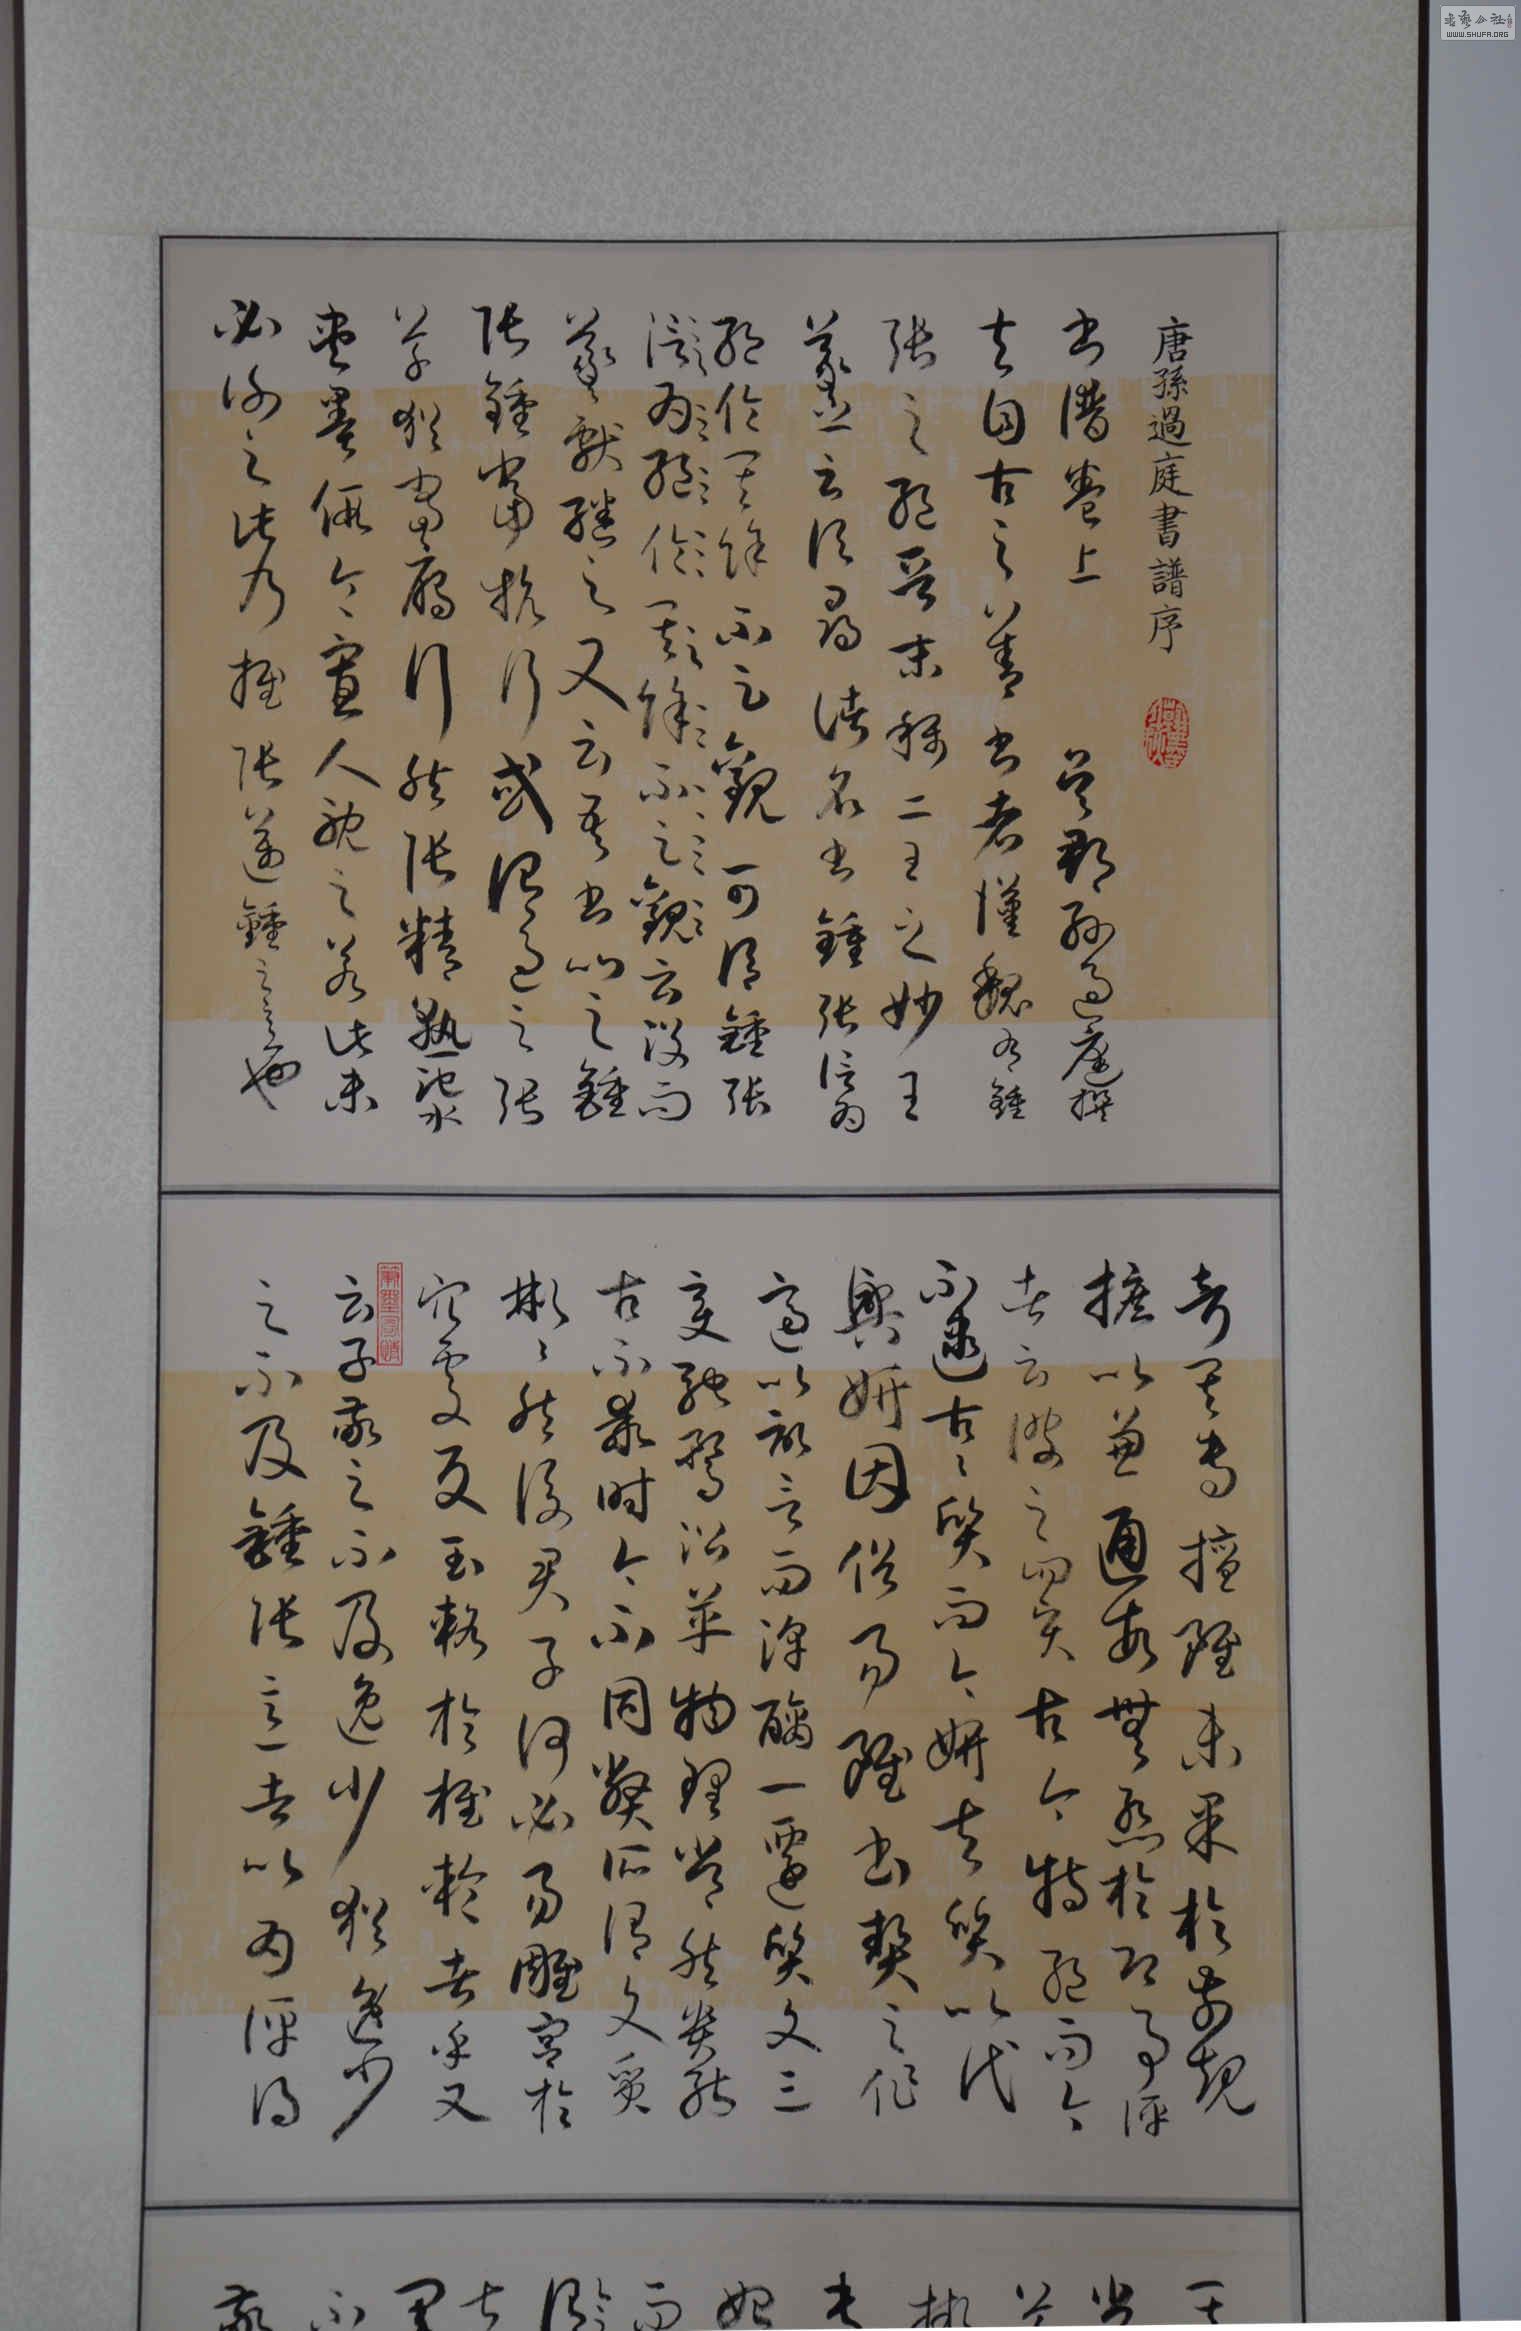 唐孫過庭書譜序
書譜卷上 吳郡孫過庭撰
夫自古之善書者漢魏有鍾
張之絕晉末稱二王之妙王
羲之云頃尋諸名書鍾張信為
絕倫其餘不足觀可謂鍾張
信為絕倫其餘不足觀云沒而
羲獻繼之又云吾書比之鍾
張鍾當抗行或謂過之張
草猶當鴈行然張精熟池水
盡墨假令寡人耽之若此未
必謝之此乃推張邁鍾之意也
考其專擅雖未果於前規
摭以兼通故無慚於即事評
者云彼之四賢古今特絕而今
不逮古々質而今妍夫質以代
興妍因俗易雖書契之作
適以記言而淳醨一遷質文三
變馳騖沿革物理常然貴能
古不乖時今不同弊所謂文質
彬々然後君子何必易雕宮於
穴處反玉輅於椎輪者乎又
云子敬之不及逸少猶逸少
之不及鍾張意者以為評得
书艺公社
WWW.SHUFA.ORG